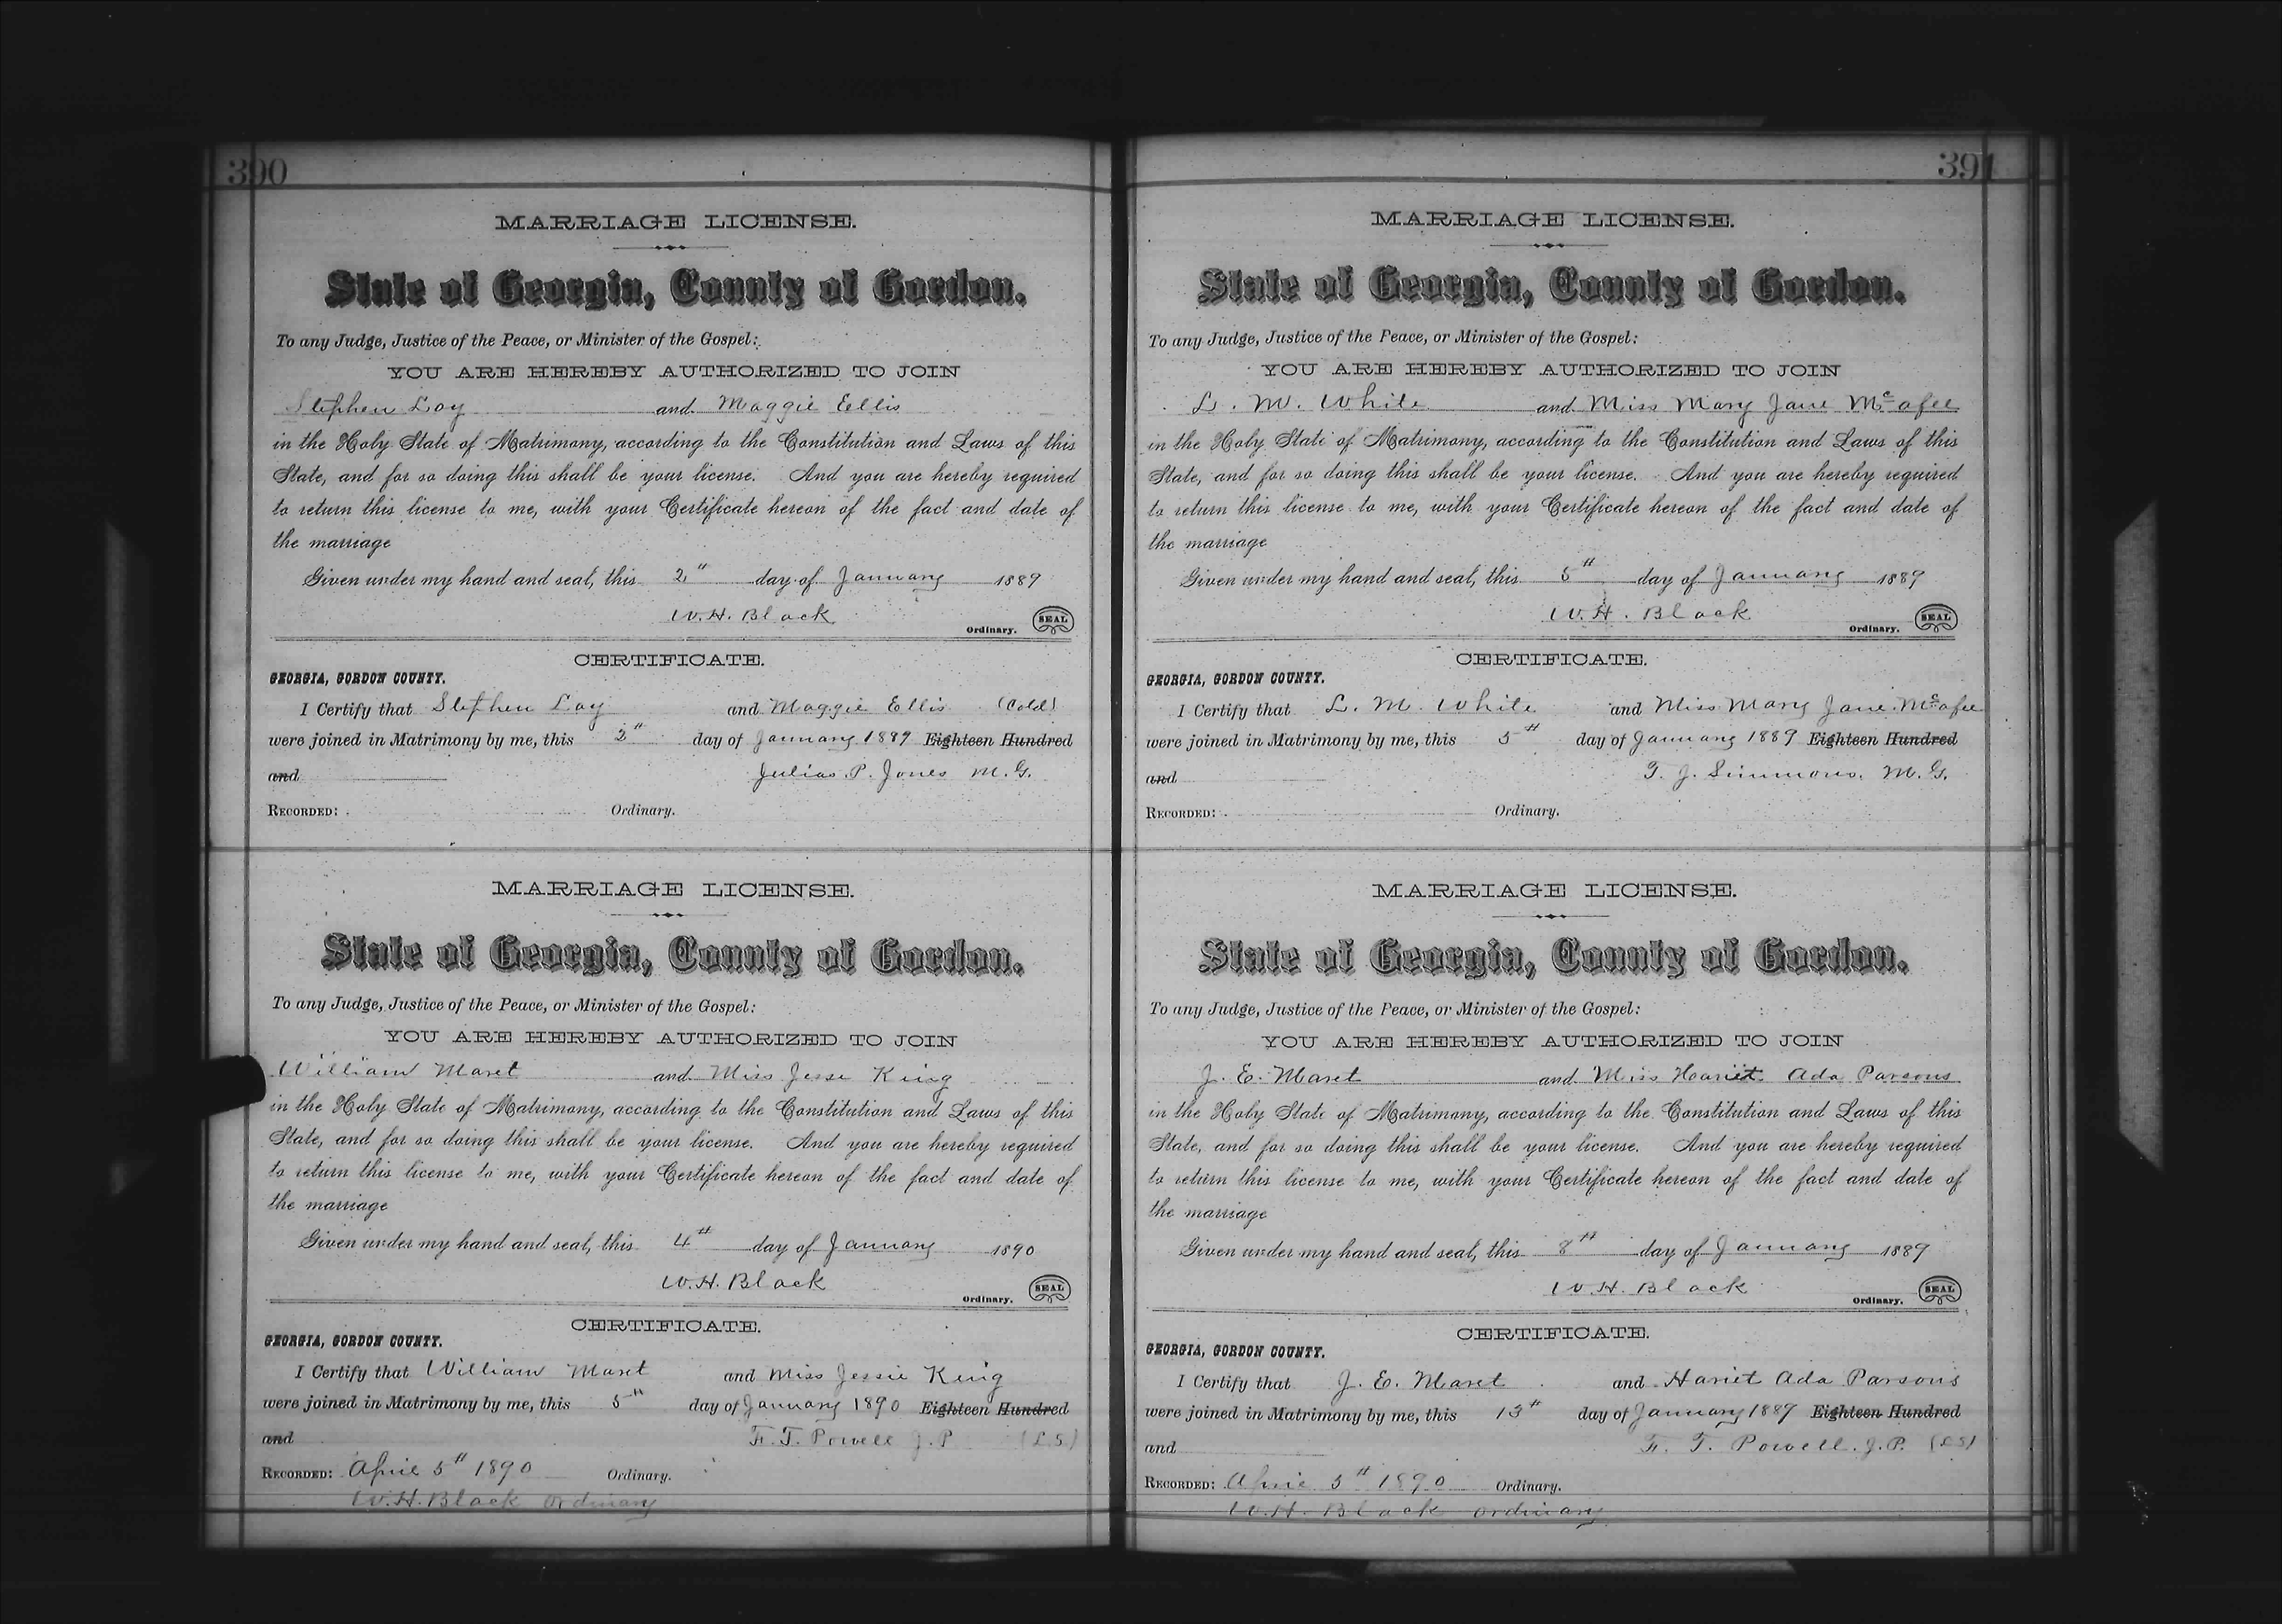 390
MARRIAGE LICENSE.
State of Georgia, County of Gordon.
To any Judge, Justice of the Peace, or Minister of the Gospel:
YOU ARE HEREBY AUTHORIZED TO JOIN
Stephen Loy and Maggie Ellis
in the Holy State of Matrimony, according to the Constitution and Laws of this
State, and for so doing this shall be your license. And you are hereby required
to return this license to me, with your Certificate hereon of the fact and date of
the marriage
Given under my hand and seal, this 2" day of January 1889
W.H. Black
Ordinary. SEAL
CERTIFICATE.
GEORGIA, GORDON COUNTY.
I Certify that Stephen Loy and Maggie Ellis (Cold)
were joined in Matrimony by me, this 2" day of January 1889 Eighteen Hundred
and Julias P. Jones M.G.
RECORDED: Ordinary.
MARRIAGE LICENSE.
State of Georgia, County of Gordon.
To any Judge, Justice of the Peace, or Minister of the Gospel:
YOU ARE HEREBY AUTHORIZED TO JOIN
William Maret and Miss Jesse King
in the Holy State of Matrimony, according to the Constitution and Laws of this
State, and for so doing this shall be your license. And you are hereby required
to return this license to me, with your Certificate hereon of the fact and date of
the marriage
Given under my hand and seal, this 4th day of January 1890
W.H. Black
Ordinary. SEAL
CERTIFICATE.
GEORGIA, GORDON COUNTY.
I Certify that William Maret and Miss Jessie King
were joined in Matrimony by me, this 5th day of January 1890 Eighteen Hundred
and F. T. Powell J.P (L.S.)
RECORDED: April 5th 1890 Ordinary.
W.H. Black ordinary
391
MARRIAGE LICENSE.
State of Georgia, County of Gordon.
To any Judge, Justice of the Peace, or Minister of the Gospel:
YOU ARE HEREBY AUTHORIZED TO JOIN
L. M. White and Miss Mary Jane Mcafee
in the Holy State of Matrimony, according to the Constitution and Laws of this
State, and for so doing this shall be your license. And you are hereby required
to return this license to me, with your Certificate hereon of the fact and date of
the marriage
Given under my hand and seal, this 5th day of January 1889
W.H. Black
Ordinary. SEAL
CERTIFICATE.
GEORGIA, GORDON COUNTY.
I Certify that L. M. White and Miss Mary Jane Mcafee
were joined in Matrimony by me, this 5th day of January 1889 Eighteen Hundred
and T. J. Simmons. M.G.
RECORDED: Ordinary.
MARRIAGE LICENSE.
State of Georgia, County of Gordon.
To any Judge, Justice of the Peace, or Minister of the Gospel:
YOU ARE HEREBY AUTHORIZED TO JOIN
J. E. Maret and Miss Hariet Ada Parsons
in the Holy State of Matrimony, according to the Constitution and Laws of this
State, and for so doing this shall be your license. And you are hereby required
to return this license to me, with your Certificate hereon of the fact and date of
the marriage
Given under my hand and seal, this 8th day of January 1889
W.H. Black
Ordinary. SEAL
CERTIFICATE.
GEORGIA, GORDON COUNTY.
I Certify that J. E. Maret and Hariet Ada Parsons
were joined in Matrimony by me, this 13th day of January 1889 Eighteen Hundred
and F. T. Powell. J.P. (LS)
RECORDED: April 5th 1890 Ordinary.
W.H. Black ordinary